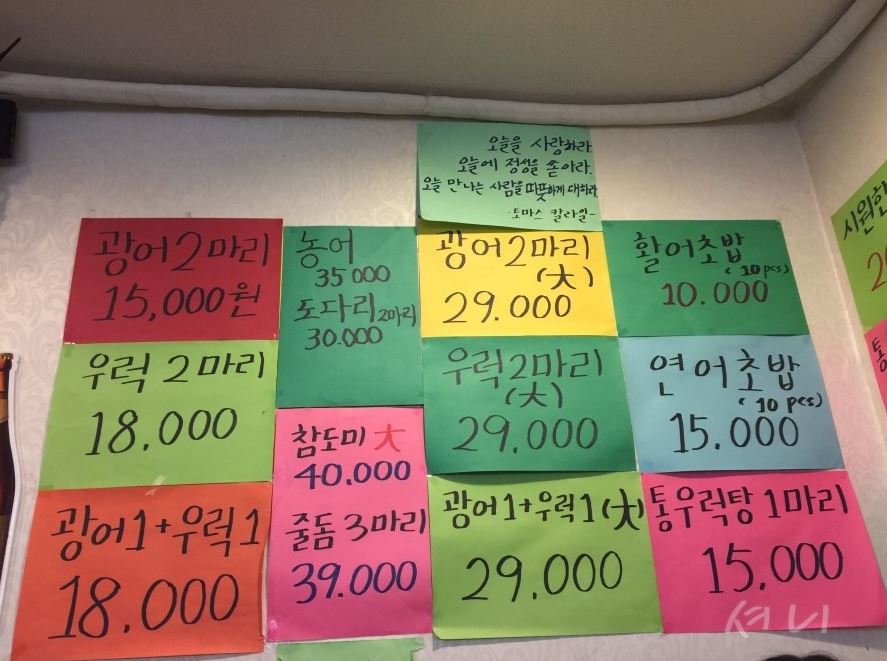 오늘을 사랑하라.
오늘에 정성을 쏟아라.
오늘 만나는 사람을 따뜻하게 대하라
-토마스 칼라일-
광어 2마리
15,000원
농어
35000
도다리 2마리
30.000
광어 2마리
(大)
29.000
활어초밥
(10pcs)
10.000
시원한
우럭 2마리
18.000
우럭2마리
(大)
29.000
연어초밥
(10 pcs)
15.000
참도미 大
40.000
줄돔 3마리
39.000
광어1+우럭1
18.000
광어1+우럭1(大)
29.000
통우럭탕 1마리
15,000
셔니